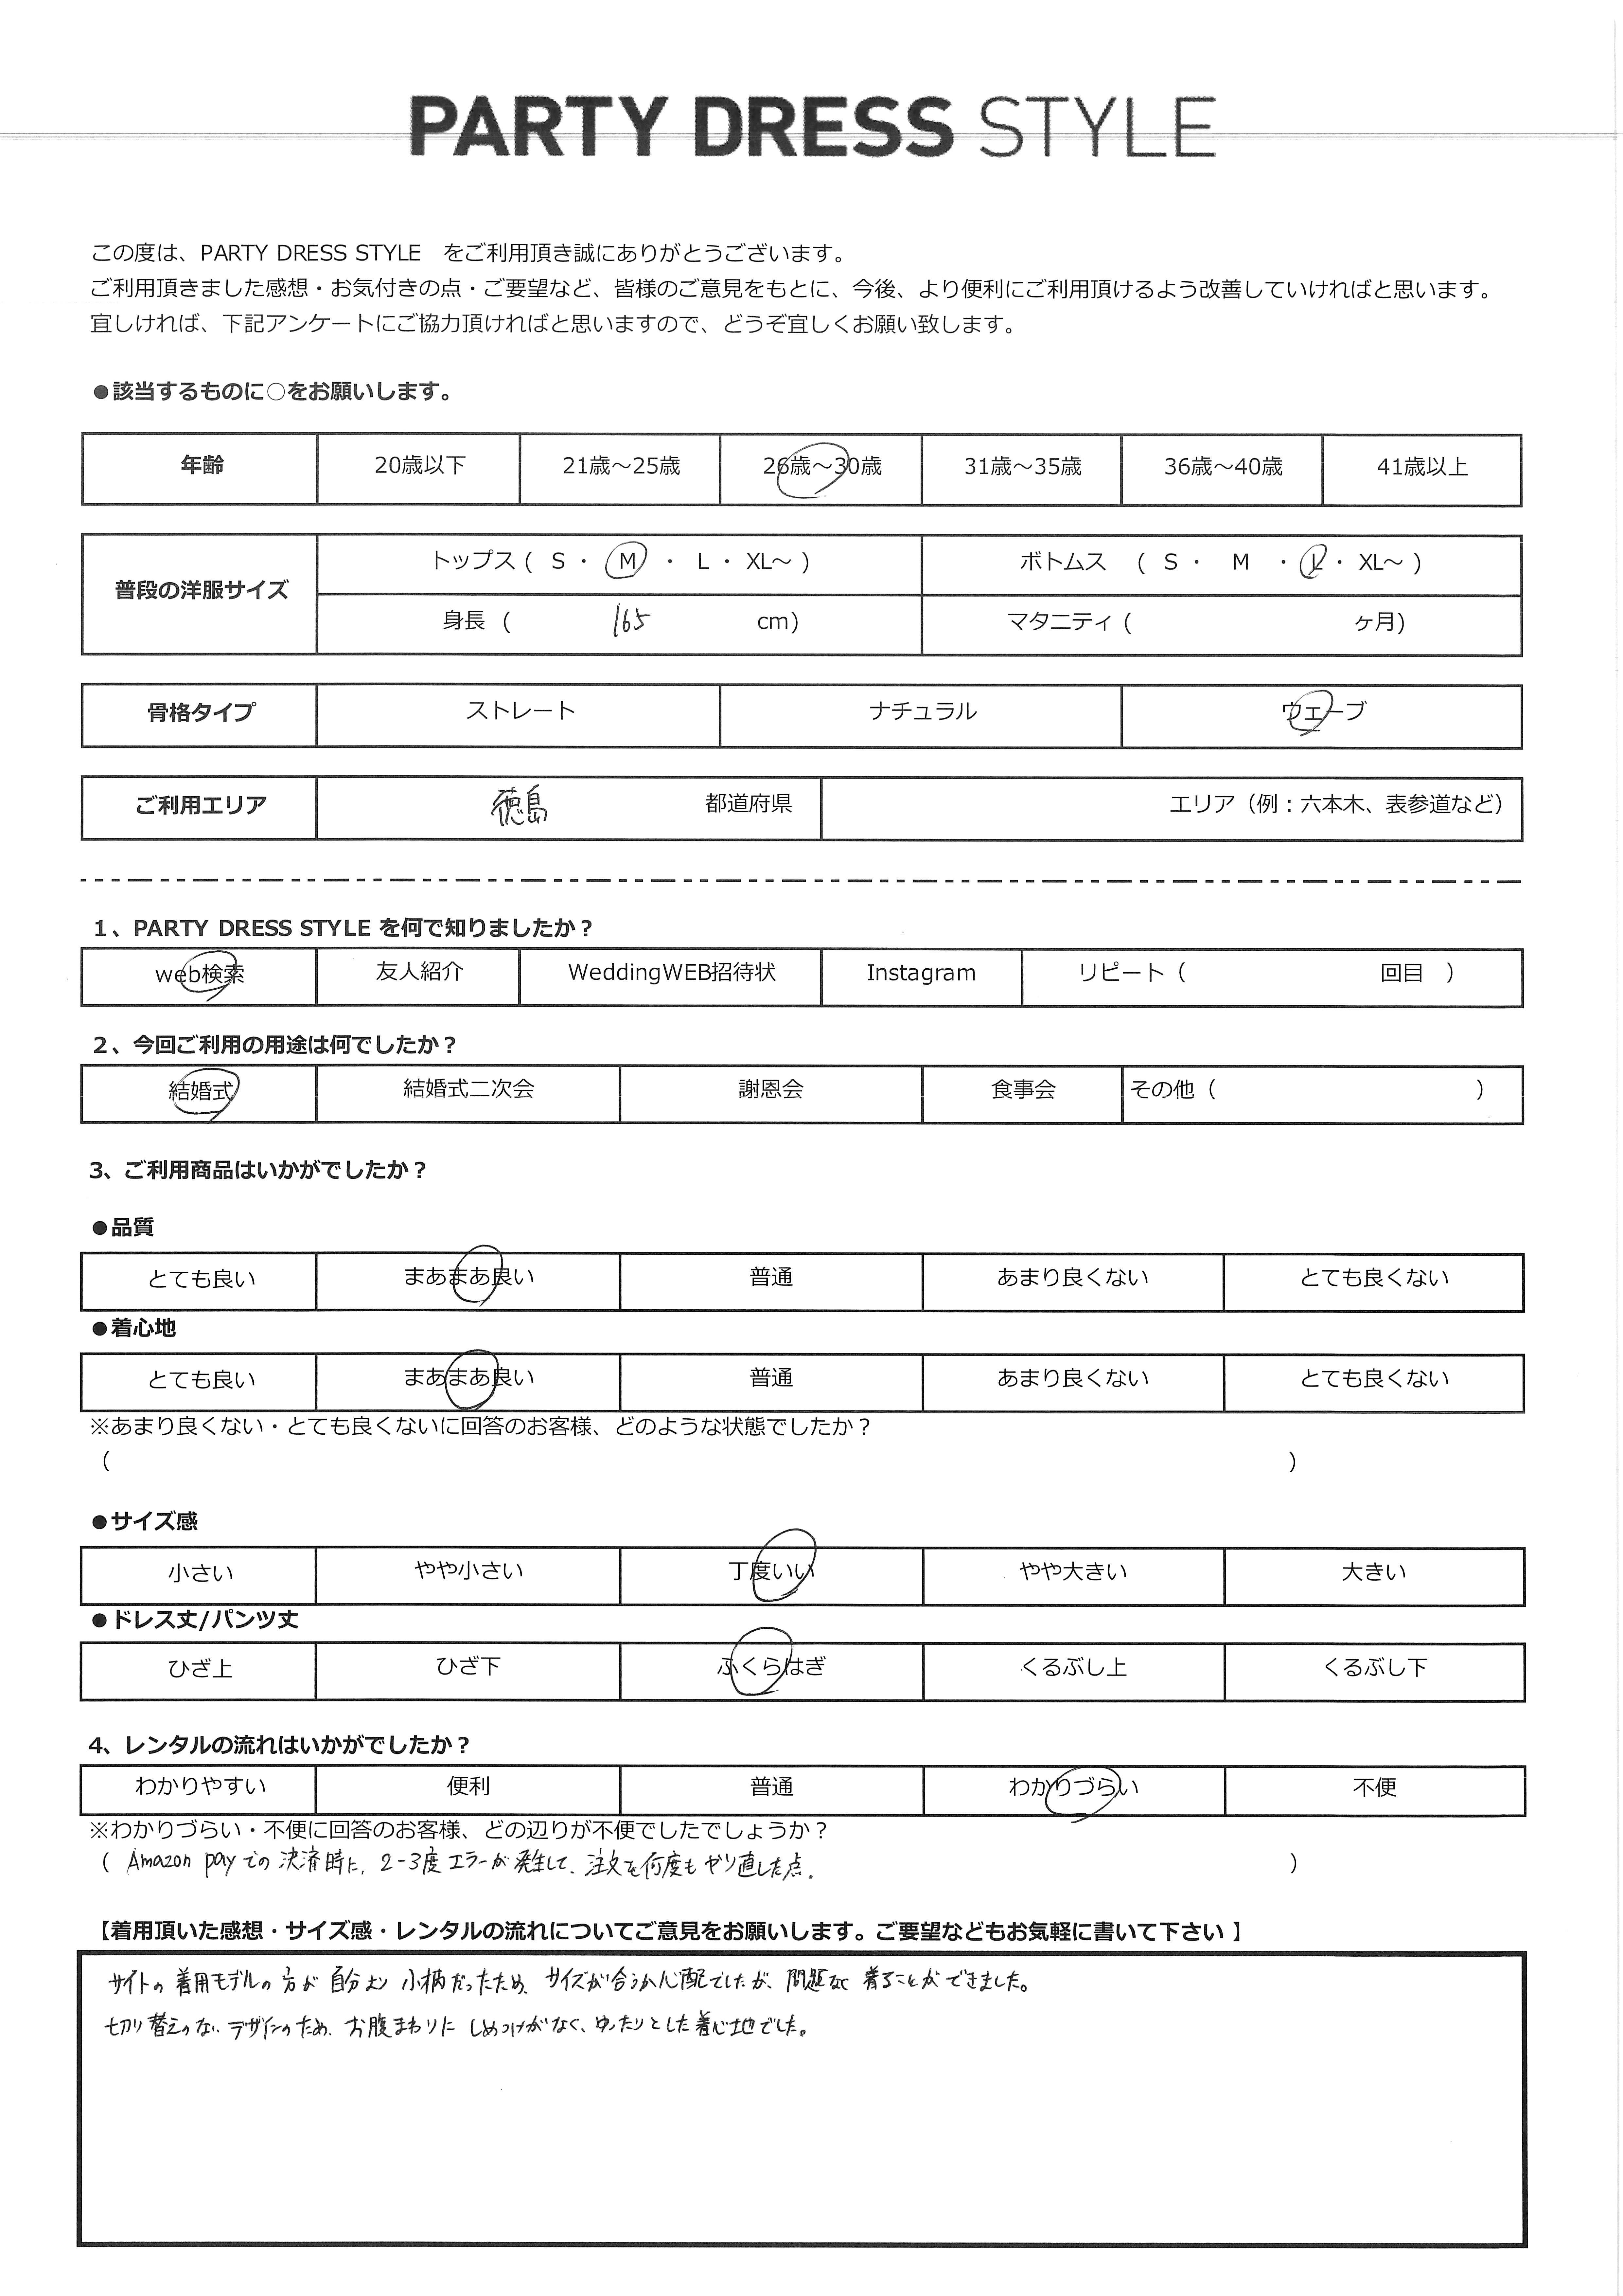 PARTY DRESS STYLE
この度は、PARTY DRESS STYLE をご利用頂き誠にありがとうございます。
ご利用頂きました感想・お気付きの点・ご要望など、皆様のご意見をもとに、今後、より便利にご利用頂けるよう改善していければと思います。
宜しければ、下記アンケートにご協力頂ければと思いますので、どうぞ宜しくお願い致します。
●該当するものに○をお願いします。
年齢 20歳以下 21歳～25歳 26歳～30歳 31歳～35歳 36歳～40歳 41歳以上
普段の洋服サイズ
トップス ( S ・ M ・ L ・ XL～ ) ボトムス ( S ・ M ・ L ・ XL～ )
身長 ( 165 cm) マタニティ ( ヶ月)
骨格タイプ ストレート ナチュラル ウエーブ
ご利用エリア 徳島 都道府県 エリア（例：六本木、表参道など）
1、PARTY DRESS STYLE を何で知りましたか？
web検索 友人紹介 WeddingWEB招待状 Instagram リピート（ 回目 ）
2、今回ご利用の用途は何でしたか？
結婚式 結婚式二次会 謝恩会 食事会 その他（ ）
3、ご利用商品はいかがでしたか？
●品質
とても良い まあまあ良い 普通 あまり良くない とても良くない
●着心地
とても良い まあまあ良い 普通 あまり良くない とても良くない
※あまり良くない・とても良くないに回答のお客様、どのような状態でしたか？
（ ）
●サイズ感
小さい やや小さい 丁度いい やや大きい 大きい
●ドレス丈/パンツ丈
ひざ上 ひざ下 ふくらはぎ くるぶし上 くるぶし下
4、レンタルの流れはいかがでしたか？
わかりやすい 便利 普通 わかりづらい 不便
※わかりづらい・不便に回答のお客様、どの辺りが不便でしたでしょうか？
（ Amazon payでの決済時に、2-3度エラーが発生して、注文を何度もやり直した点。 ）
【着用頂いた感想・サイズ感・レンタルの流れについてご意見をお願いします。ご要望などもお気軽に書いて下さい 】
サイトの着用モデルの方が自分より小柄だったため、サイズが合うか心配でしたが、問題なく着ることができました。
切り替えのないデザインのため、お腹まわりにしめつけがなく、ゆったりとした着心地でした。